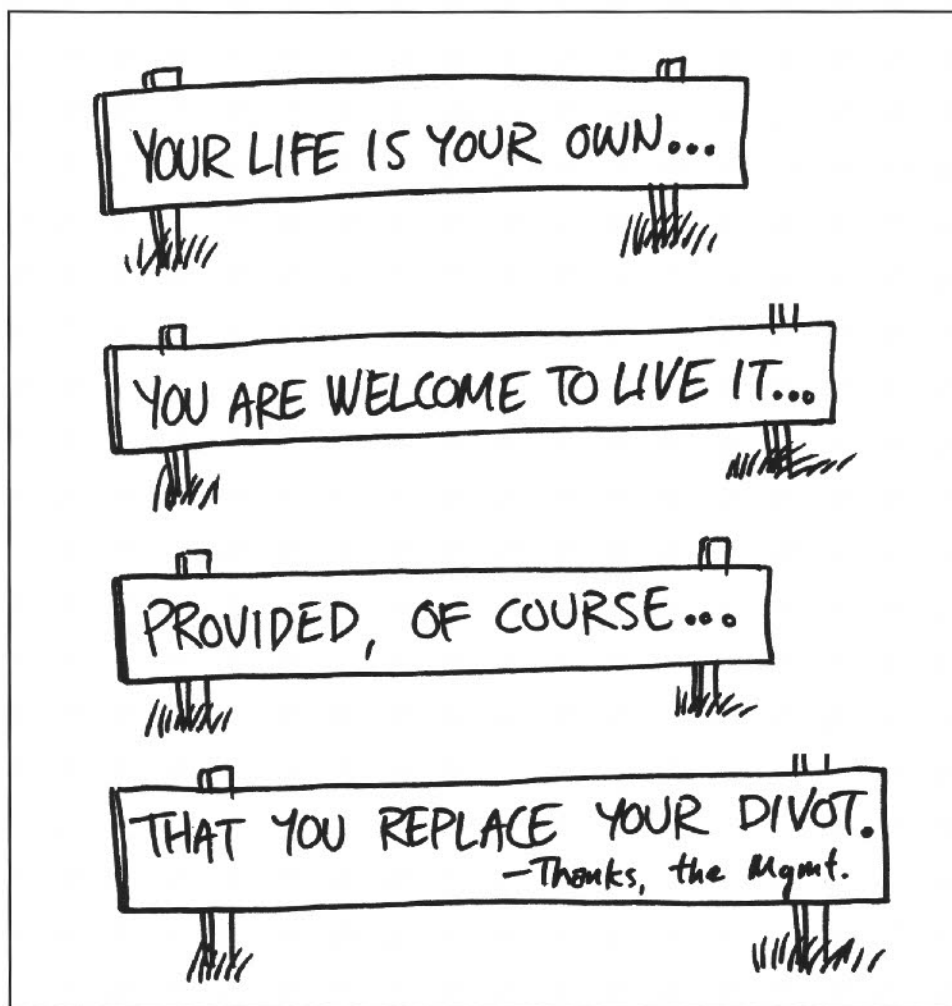 YOUR LIFE IS YOUR OWN...
YOU ARE WELCOME TO LIVE IT...
PROVIDED, OF COURSE...
THAT YOU REPLACE YOUR DIVOT.
—Thanks, the Mgmt.